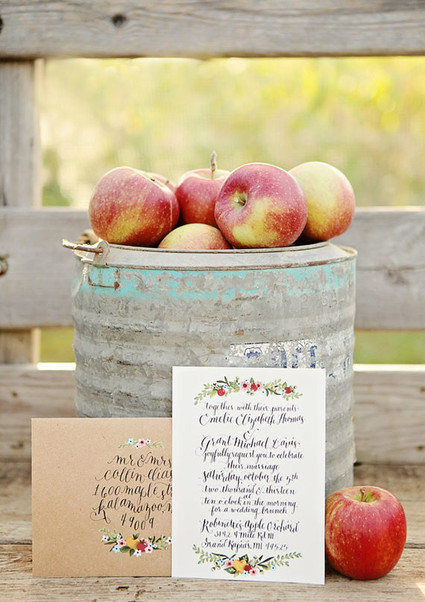 mr & mrs
collin elias
1600 maple st
kalamazoo, m
49004
together with their parents
Emelie Elizabeth Thomas
&
Grant Michael
joyfully request you to celebrate
their marriage
Saturday, october the 5th
two thousand & thirteen at
ten o'clock in the morning
for a wedding brunch
Robinette's Apple Orchard
3142 4 Mile Rd NE
Grand Rapids, MI 49525